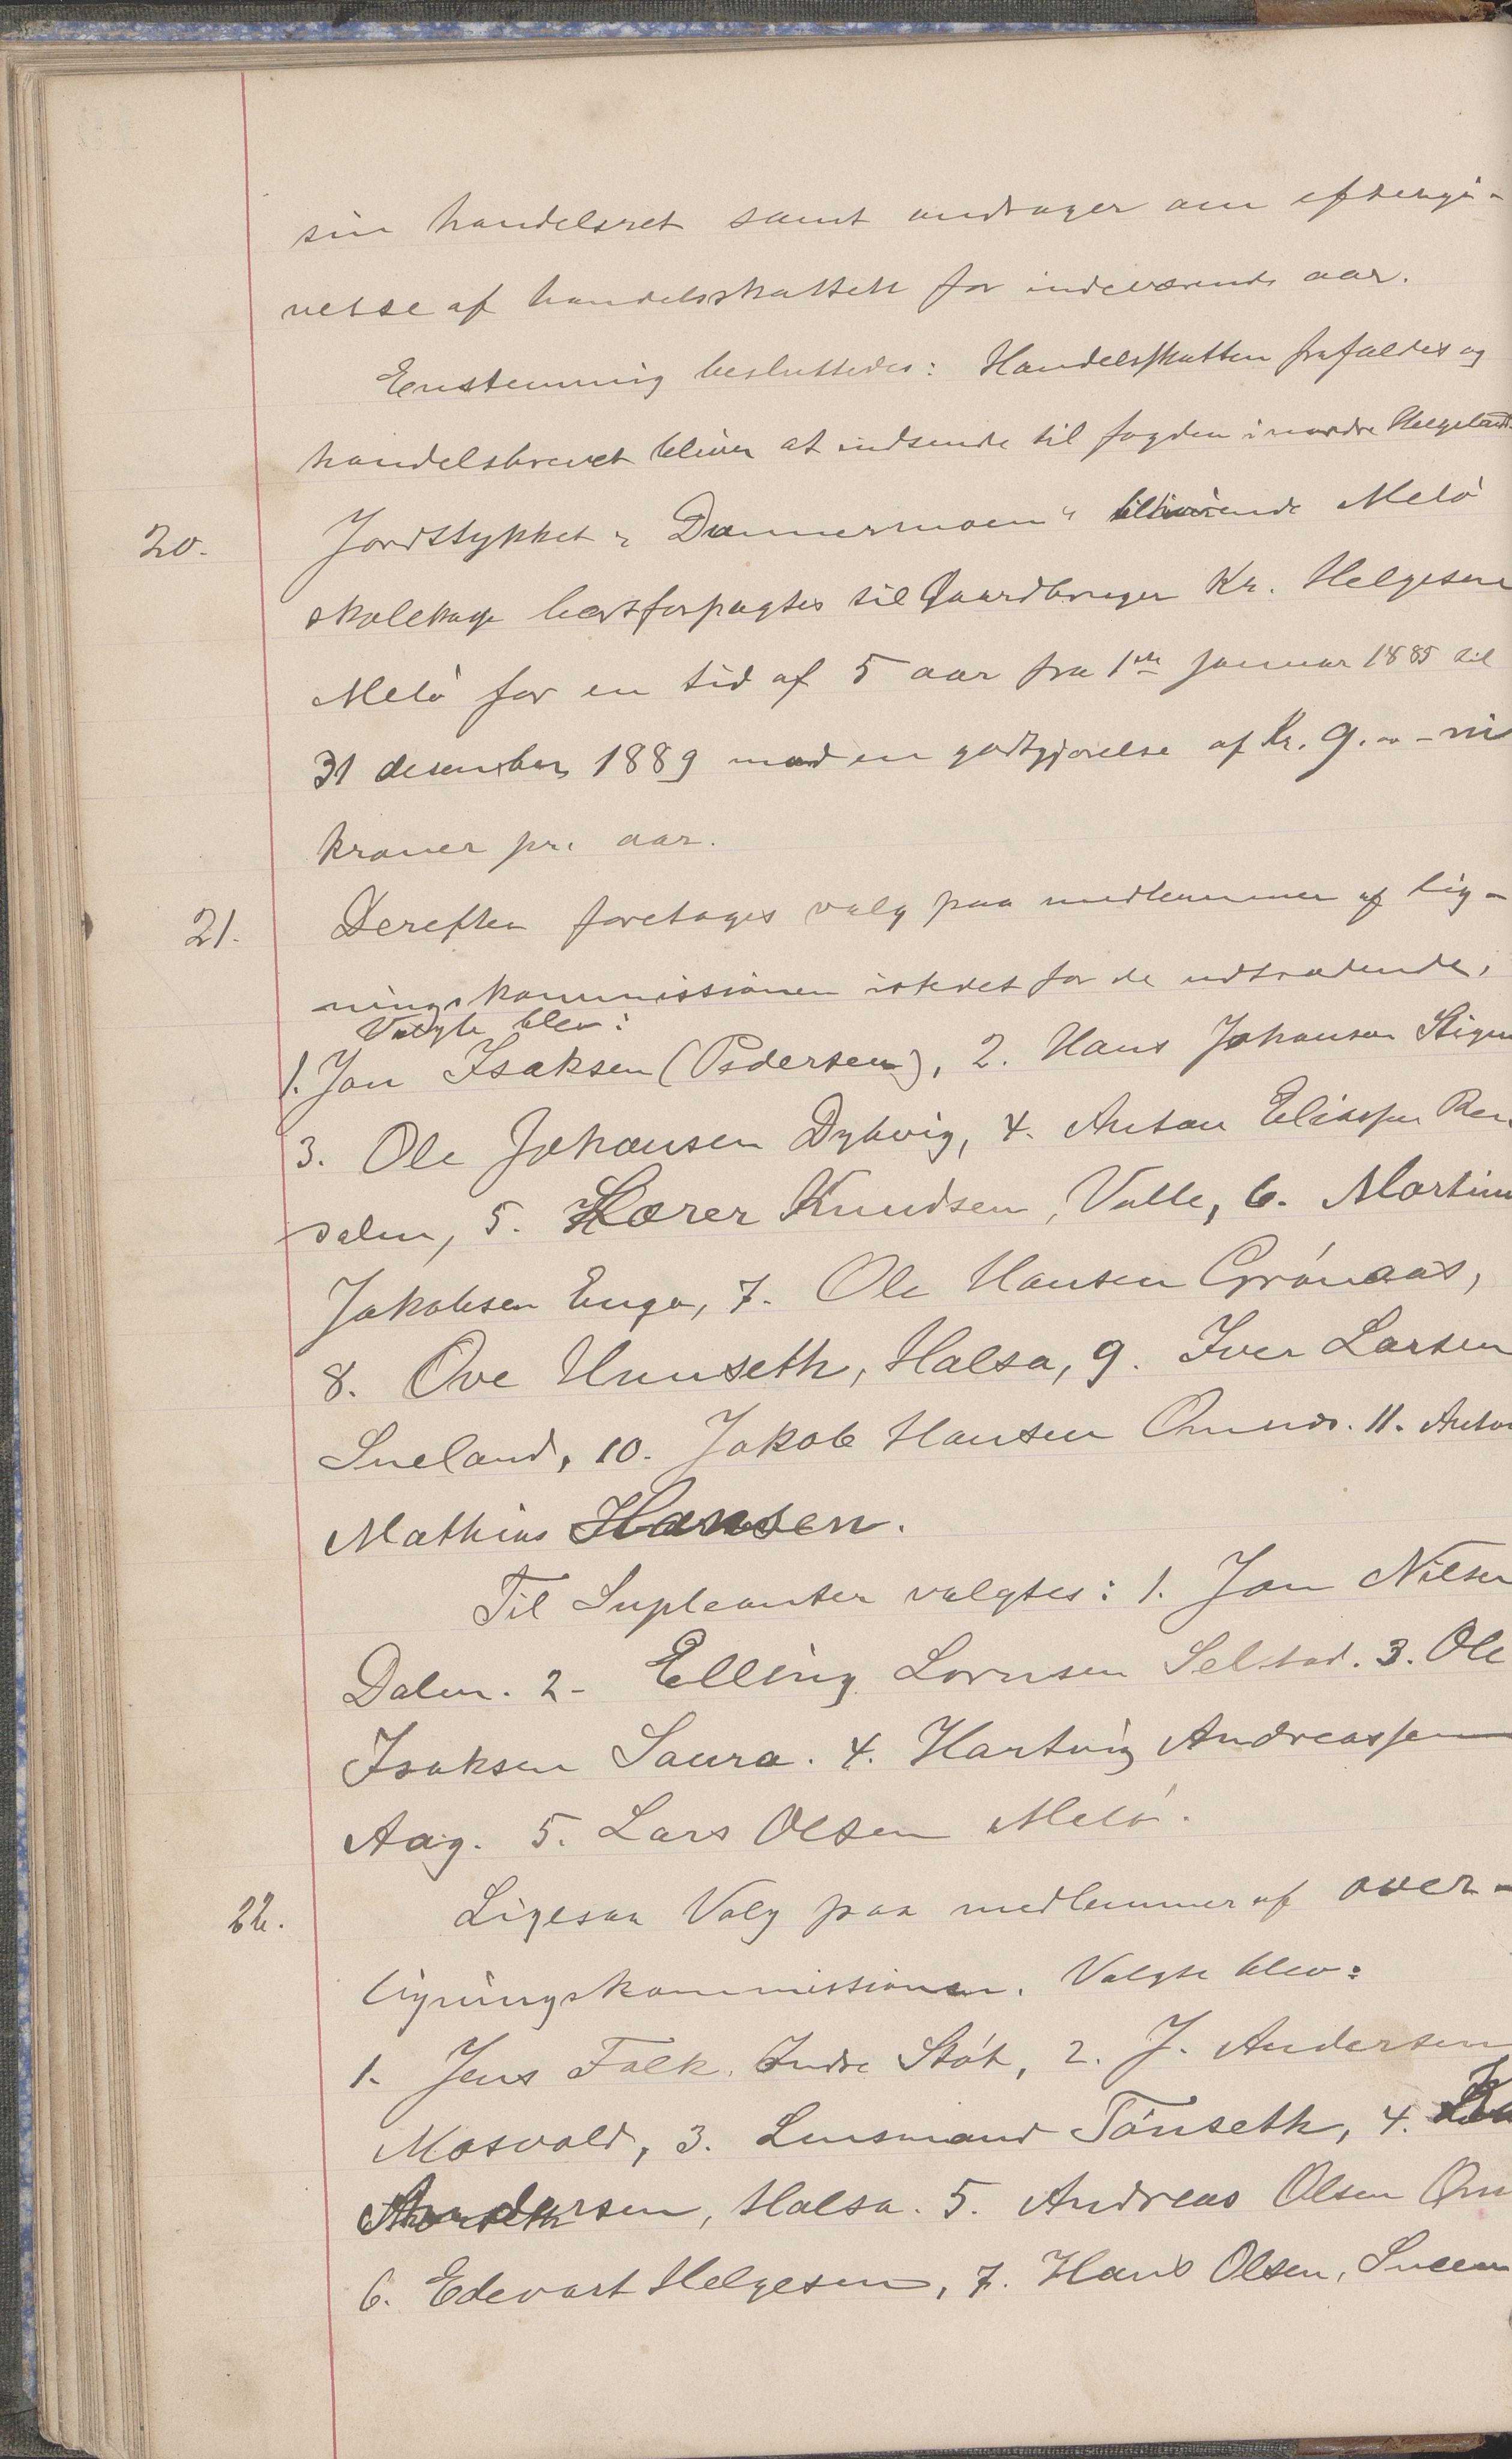 sin handelsret samt andrager om eftergi-
velse af handelsskatten for indeværende aar.
Enstemmig besluttedes: Handelsskatten frafaldes og
handelsbrevet bliver at indsende til fogden i nordre Helgeland.
20. Jordstykket "Dammermoen" tilhørende Melø
skolekage bortforpagtes til Gaardbruger Kr. Helgesen
Melø for en tid af 5 aar fra 1ste januar 1885 til
31 desember 1889 mod en godtgjørelse af Kr. 9.00 - ni
kroner pr. aar.
21. Derefter foretages valg paa medlemmer af lig-
ningskommissionen istedet for de udtrædende.
Valgte blev:
1. Jon Isaksen (Pedersen), 2. Hans Johansen Stigen
3. Ole Johansen Dybvig, 4. Anton Eliassen Ren-
dalen, 5. Hærer Knudsen, Valle, 6. Martin
Jakobsen Enga, 7. Ole Hansen Grønaas,
8. Ove Hunseth, Halsa, 9. Iver Larsen
Sneland, 10. Jakob Hansen Ørnes. 11. Anton
Mathias Hansen.
Til Supleanter valgtes: 1. Jon Nilsen
Dalen. 2- Elling Lornsen Selstad. 3. Ole
Isaksen Saura. 4. Hartvig Andreassen
Aag. 5. Lars Olsen Melø.
22. Ligesaa Valg paa medlemmer af over-
ligningskommissionen. Valgte blev:
1. Jens Falk, Indre Støt, 2. J. Andersen
Mosvold, 3. Lensmand Tønseth, 4.
Andersen, Halsa. 5. Andreas Olsen
6. Edevart Helgesen, 7. Hans Olsen,